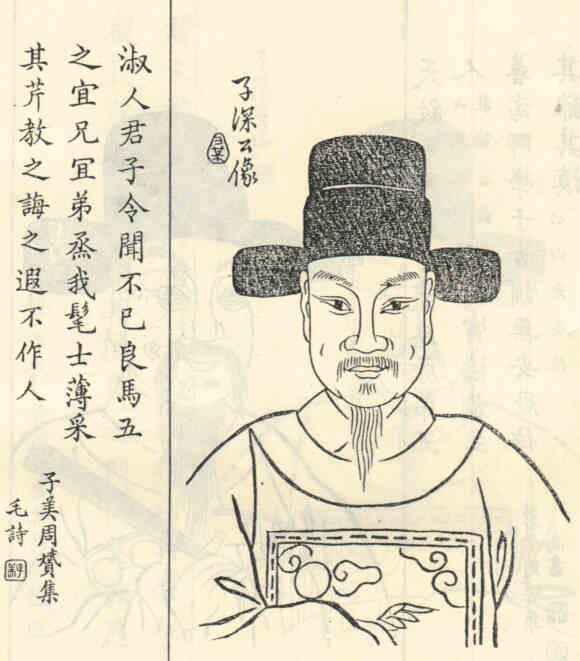 子深公像
淑人君子令聞不已良馬五
之宜兄宜弟烝我髦士薄采
其芹教之誨之遐不作人
子美周贊集
毛詩